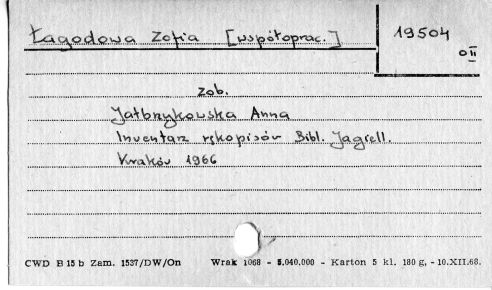 Łagodowa Zofia [współoprac.]
19504
OII
zob.
Jałbrzykowska Anna
Inwentarz rękopisów Bibl. Jagiell.
Kraków 1966
CWD B 15 b Zam. 1537/DW/On Wrak 1068 - 5.040.000 - Karton 5 kl. 180 g, - 10.XII.68.